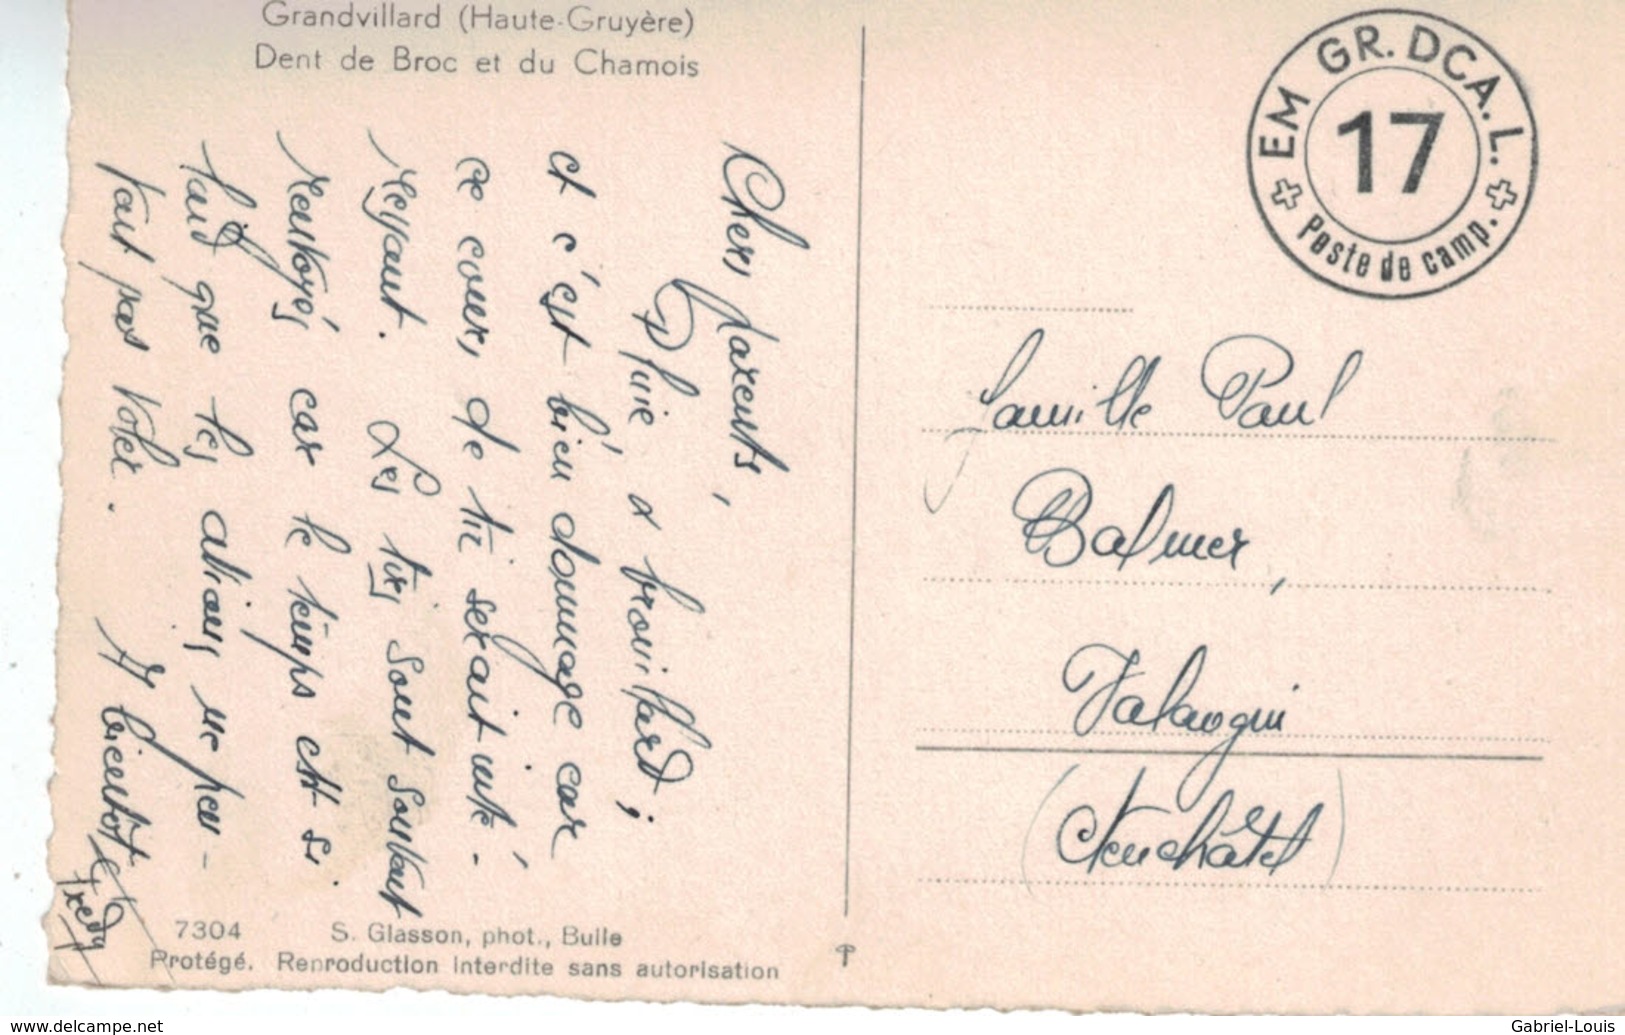 Grandvillard (Haute-Gruyère)
Dent de Broc et du Chamois
Chers parents,
Pluie, & brouillard;
et c'est bien dommage car
ce cours, de tir serait inté-
ressant. Les tirs sont souvent
renvoyés car le temps est si
laid que les avions ne peu-
vent pas voler.
A bientôt
Fredy
EM GR. DCA. L.
17
Poste de camp.
Famille Paul
Balmer,
Valangin
(Neuchâtel)
7304 S. Glasson, phot., Bulle
Protégé. Reproduction interdite sans autorisation
www.delcampe.net
Gabriel-Louis